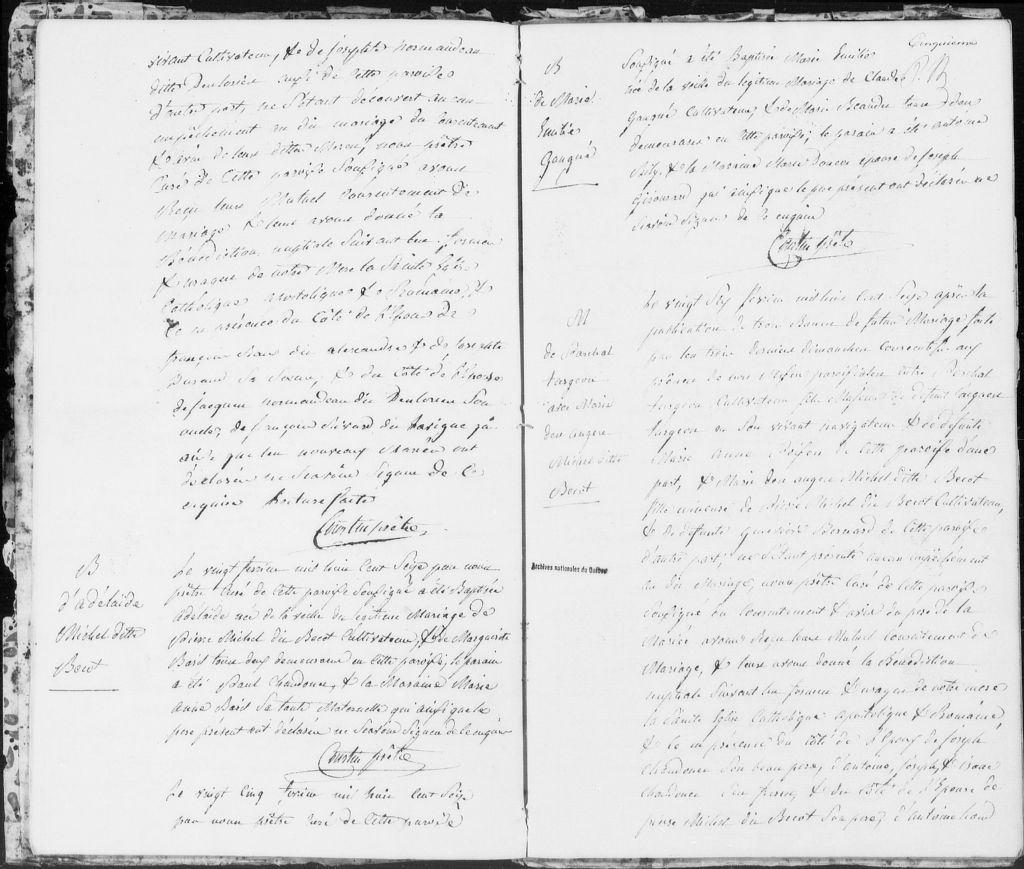 vivant Cultivateur, & de Josephte normandeau
ditte Denlorier aussi de Cette paroisse
d'autre part, ne s'étant découvert aucun
empêchement au dit mariage du consentement
& avis de leurs dittes Meres, nous prêtre
Curé de Cette paroisse Soussigné avons
Reçu leur Mutuel Consentement de
Mariage & leur avons donné la
Bénédiction nuptiale Suivant les formes
& usages de notre Mere la Sainte Eglise
Catholique apostolique & Romaine, &
Ce en présence du Côté de l'Epoux de
françois Jean dit alexandre & de
Durand Sa Soeur, & du Côté de l'Epouse
de Jacques normandeau dit Denlorier Son
oncle, de françois Sivard du
ainsi que les nouveaux Mariés ont
déclarés ne Scavoir Signer de Ce
enquis lecture faite
Courtin prêtre
B
d'adélaïde
Michel ditte
Becot
Le vingt fevrier mil huit Cent Seize par nous
prêtre Curé de Cette paroisse Soussigné a été Baptisée
Adelaïde née de la veille du légitime Mariage de
Pierre Michel dit Becot Cultivateur, & de Marguerite
Baril tous deux demeurans en Cette paroisse, le parain
a été Paul Chandonné, & la Maraine Marie
Anne Baril Sa tante Maternelle qui ainsi que le
pere présent ont déclarés ne Scavoir Signer de Ce enquis
Courtin prêtre
Le vingt Cinq fevrier mil huit Cent Seize
par nous prêtre Curé de Cette paroisse
Cinquieme
B
de Marie
Emilie
Gangné
Soussigné a été Baptisée Marie Emilie
née de la veille du legitime Mariage de Claude
Gangné Cultivateur, & de Marie Beaudet tous deux
demeurans en Cette paroisse; le parain a été antoine
& la Maraine Marie épouse de Joseph
qui ainsi que le pere présent ont déclarés ne
Scavoir Signer de Ce enquis
Courtin prêtre
M
de Paschal
turgeon
avec Marie
des anges
Michel ditte
Becot
Le vingt Six fevrier mil huit Cent Seize après la
publication de trois Bancs de futur Mariage faite
par les trois derniers dimanches Consecutifs aux
prônes de nos Messes paroissiales entre Paschal
turgeon Cultivateur fils Majeur de défunt Jacques
turgeon en Son vivant navigateur & de défunte
Marie Anne de Cette paroisse d'une
part, & Marie des anges Michel ditte Becot
fille mineure de Pierre Michel dit Becot Cultivateur,
& de défunte Genevieve Bernard de Cette paroisse
d'autre part; ne S'étant présenté aucun empêchement
au dit Mariage, nous prêtre Curé de Cette paroisse
Soussigné vu Consentement & avis du pere de la
Mariée avons Reçu leur Mutuel Consentement de
Mariage, & leur avons donné la Bénédiction
nuptiale Suivant les formes & usages de notre mere
la Sainte Eglise Catholique apostolique & Romaine,
& Ce en présence du Côté de l'Epoux de Joseph
Chandonné Son beau pere, d'antoine, Joseph, & isaac
Chandonné Ses freres, & du Côté de l'Epouse de
pierre Michel dit Becot Son pere, d'antoine
Archives nationales du Québec